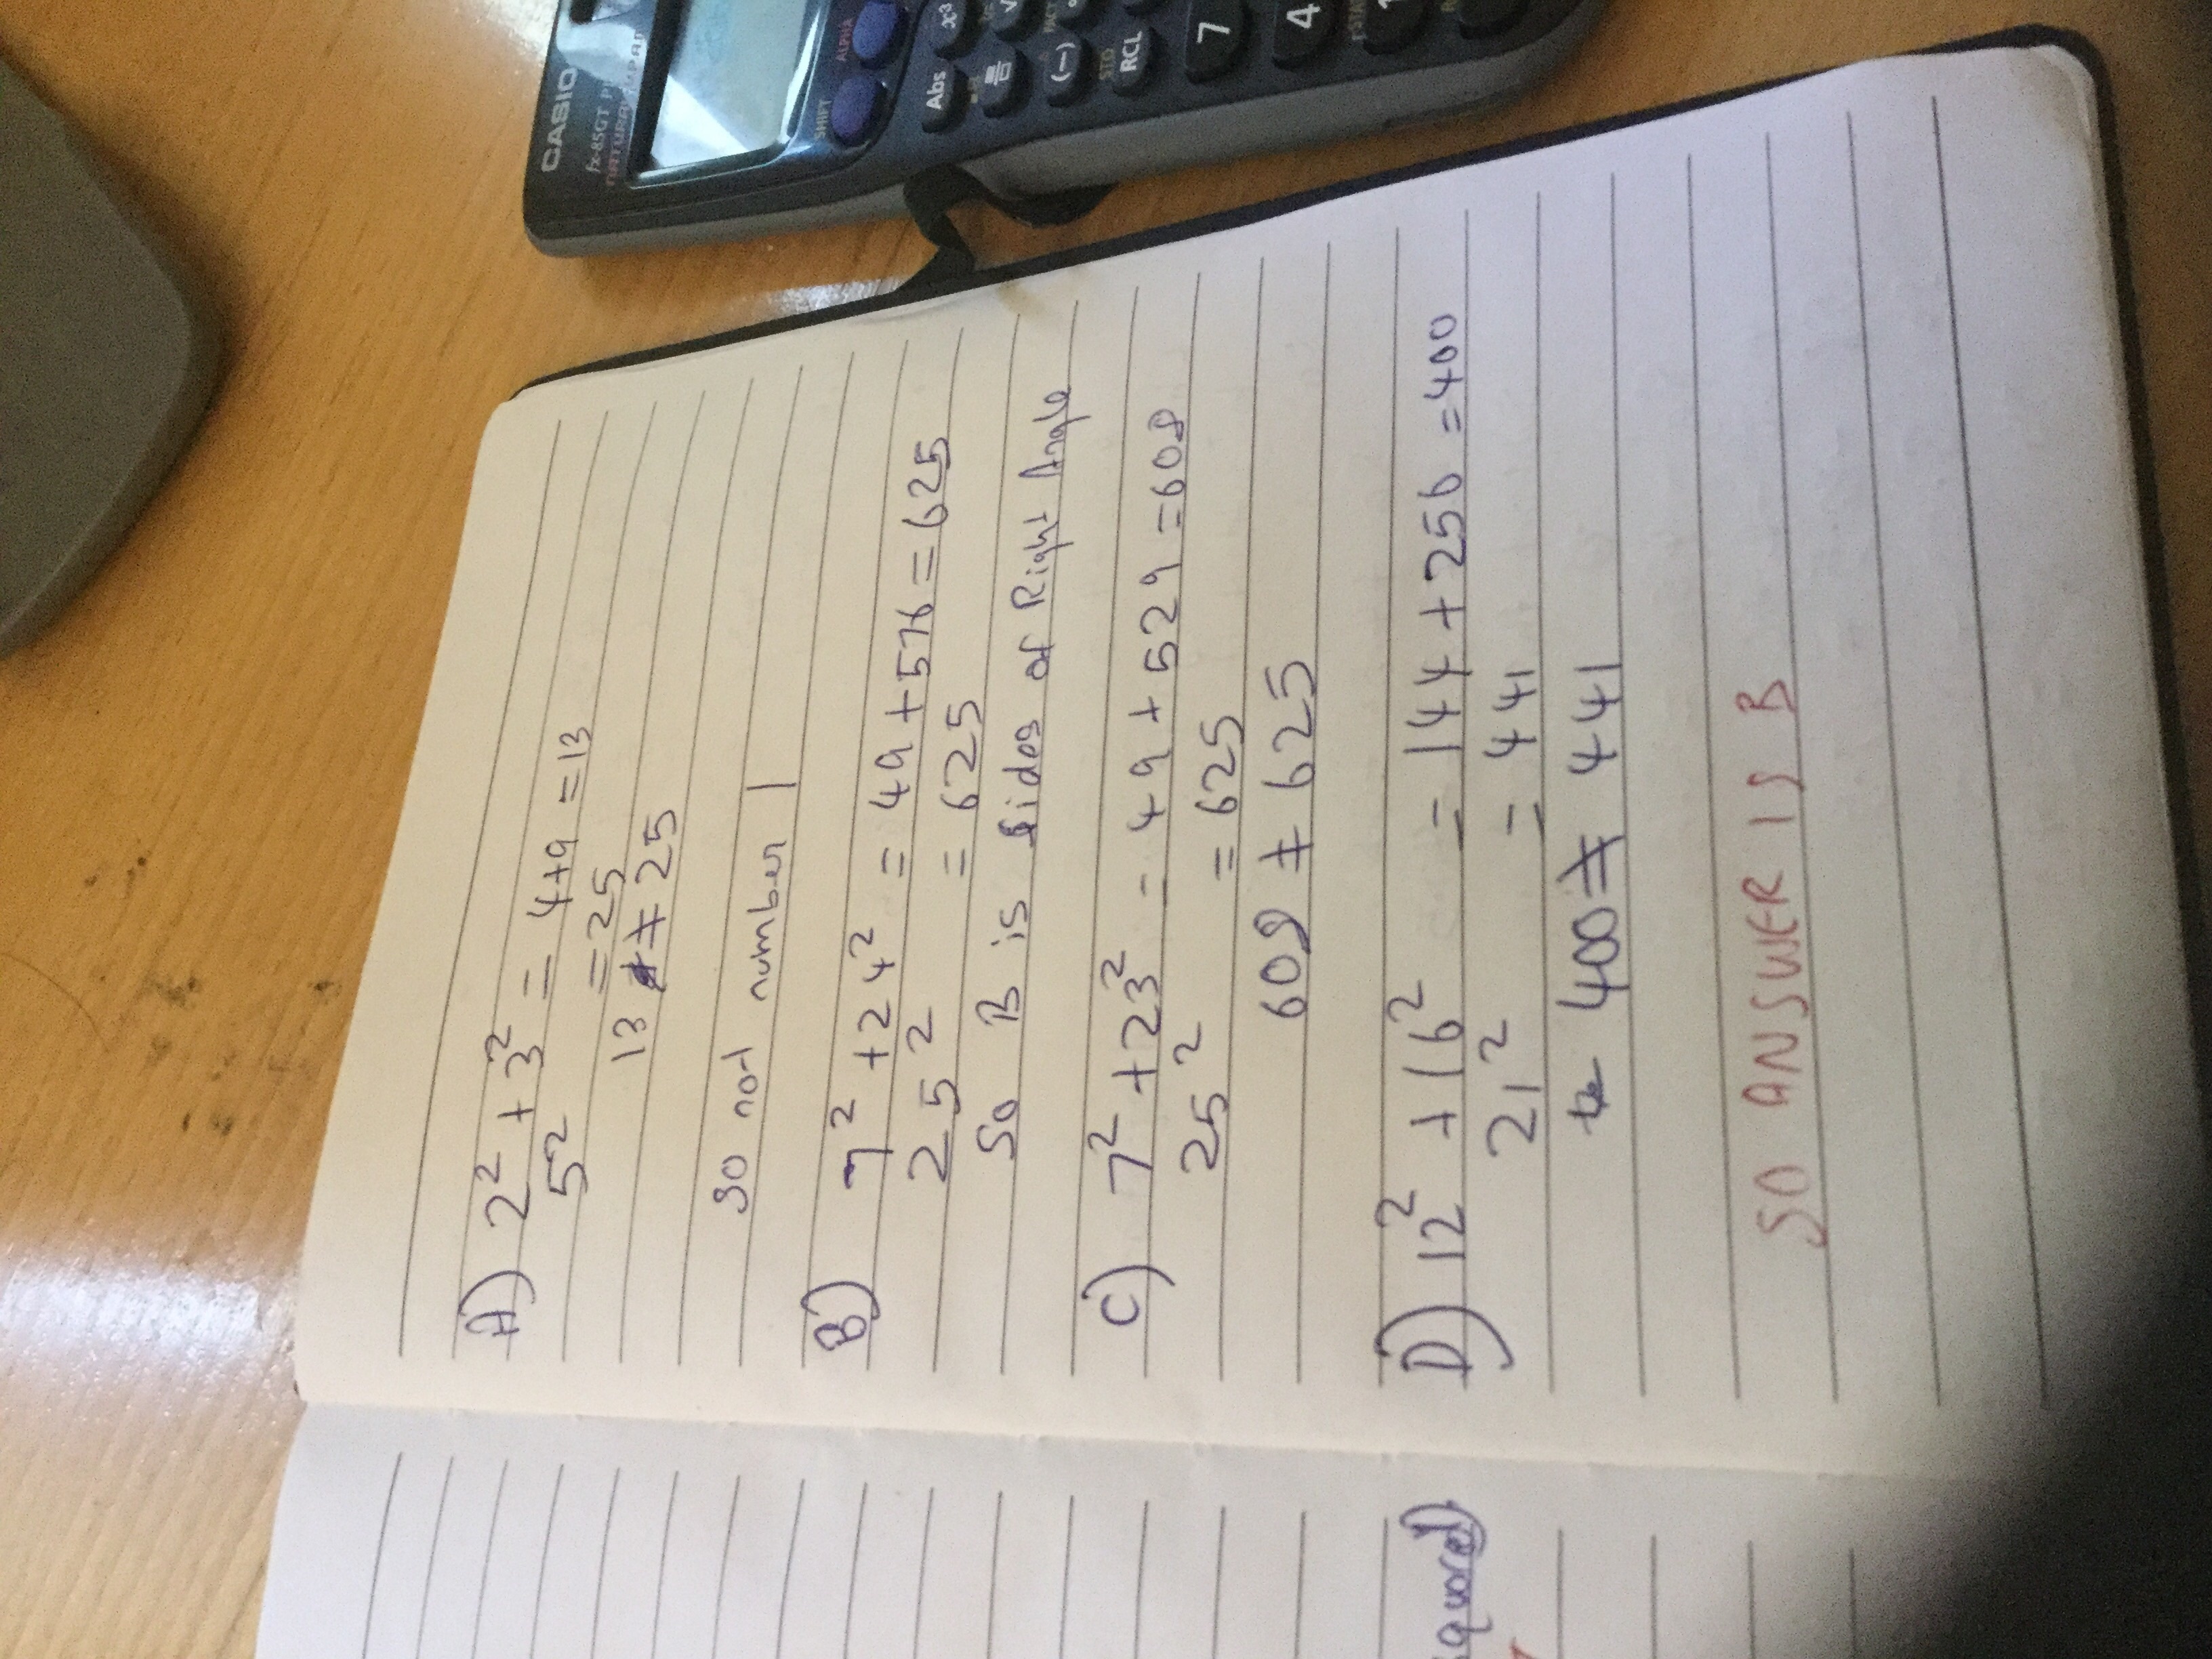 CASIO
fx-85GT PL
NATURAL-V.P.A.M.
SHIFT
ALPHA
Abs
x³
(−)
STO
RCL
7
4
1
A) 2² + 3² = 4+9 = 13
5² = 25
13 ≠ 25
so not number 1
B) 7² + 24² = 49 + 576 = 625
25² = 625
So B is sides of Right Angle
C) 7² + 23² = 49 + 529 = 608
25² = 625
608 ≠ 625
D) 12² + 16² = 144 + 256 = 400
21² = 441
400 ≠ 441
SO ANSWER IS B
squared)